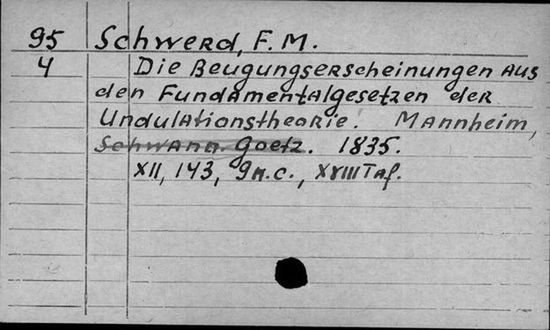 95 Schwerd, F. M.
4 Die Beugungserscheinungen aus
den Fundamentalgesetzen der
Undulationstheorie. Mannheim,
Schwann. Goetz. 1835.
XII, 143, 9 n.c., XVIII Taf.